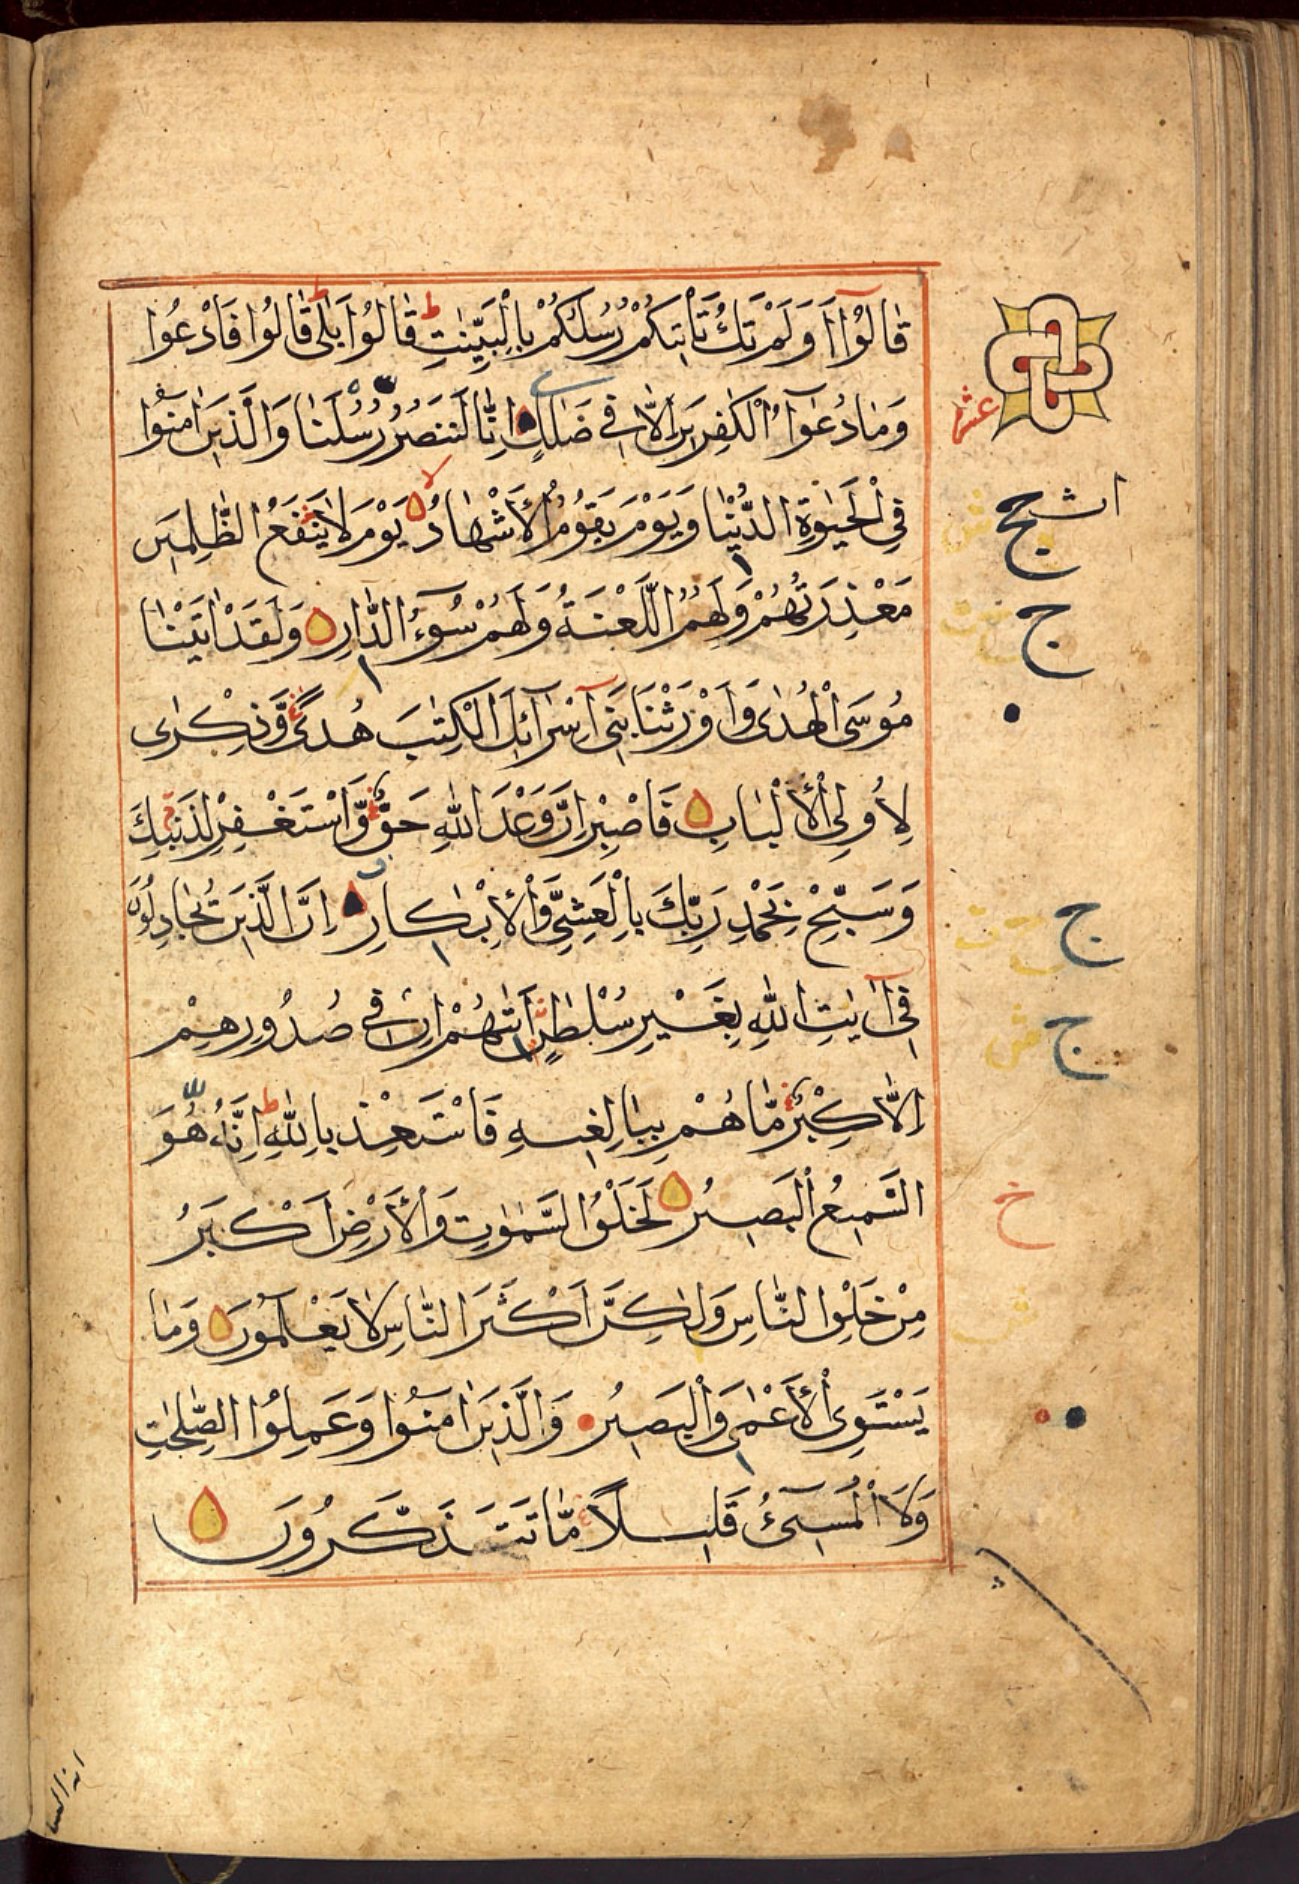 قَالُوۤا اَوَلَمْ تَكُ تَاْتِيكُمْ رُسُلُكُمْ بِالْبَيِّنٰتِ ط قَالُوْا بَلٰى ط قَالُوْا فَادْعُوا
وَمَا دُعٰۤؤُا الْكٰفِرِيْنَ اِلَّا فِي ضَلٰلٍ اِنَّا لَنَنْصُرُ رُسُلَنَا وَالَّذِيْنَ اٰمَنُوْا
عشر
فِي الْحَيٰوةِ الدُّنْيَا وَيَوْمَ يَقُوْمُ الْاَشْهَادُ لا يَوْمَ لَا يَنْفَعُ الظّٰلِمِيْنَ
مَعْذِرَتُهُمْ وَلَهُمُ اللَّعْنَةُ وَلَهُمْ سُوۤءُ الدَّارِ وَلَقَدْ اٰتَيْنَا
ج
مُوْسَى الْهُدٰى وَاَوْرَثْنَا بَنِيۤ اِسْرَآئِلَ الْكِتٰبَ هُدًى وَّذِكْرٰى
لِاُولِي الْاَلْبَابِ فَاصْبِرْ اِنَّ وَعْدَ اللّٰهِ حَقٌّ وَّاسْتَغْفِرْ لِذَنْبِكَ
وَسَبِّحْ بِحَمْدِ رَبِّكَ بِالْعَشِيِّ وَالْاِبْكَارِ اِنَّ الَّذِيْنَ يُجَادِلُوْنَ
ج
فِيۤ اٰيٰتِ اللّٰهِ بِغَيْرِ سُلْطٰنٍ اَتٰىهُمْ اِنْ فِي صُدُوْرِهِمْ
ج
اِلَّا كِبْرٌ مَّا هُمْ بِبَالِغِيهِ فَاسْتَعِذْ بِاللّٰهِ ط اِنَّهُ هُوَ
السَّمِيْعُ الْبَصِيْرُ لَخَلْقُ السَّمٰوٰتِ وَالْاَرْضِ اَكْبَرُ
خ
مِنْ خَلْقِ النَّاسِ وَلٰكِنَّ اَكْثَرَ النَّاسِ لَا يَعْلَمُوْنَ وَمَا
يَسْتَوِي الْاَعْمٰى وَالْبَصِيْرُ وَالَّذِيْنَ اٰمَنُوْا وَعَمِلُوا الصّٰلِحٰتِ
وَلَا الْمُسِيۤءُ قَلِيْلًا مَّا تَتَذَكَّرُوْنَ